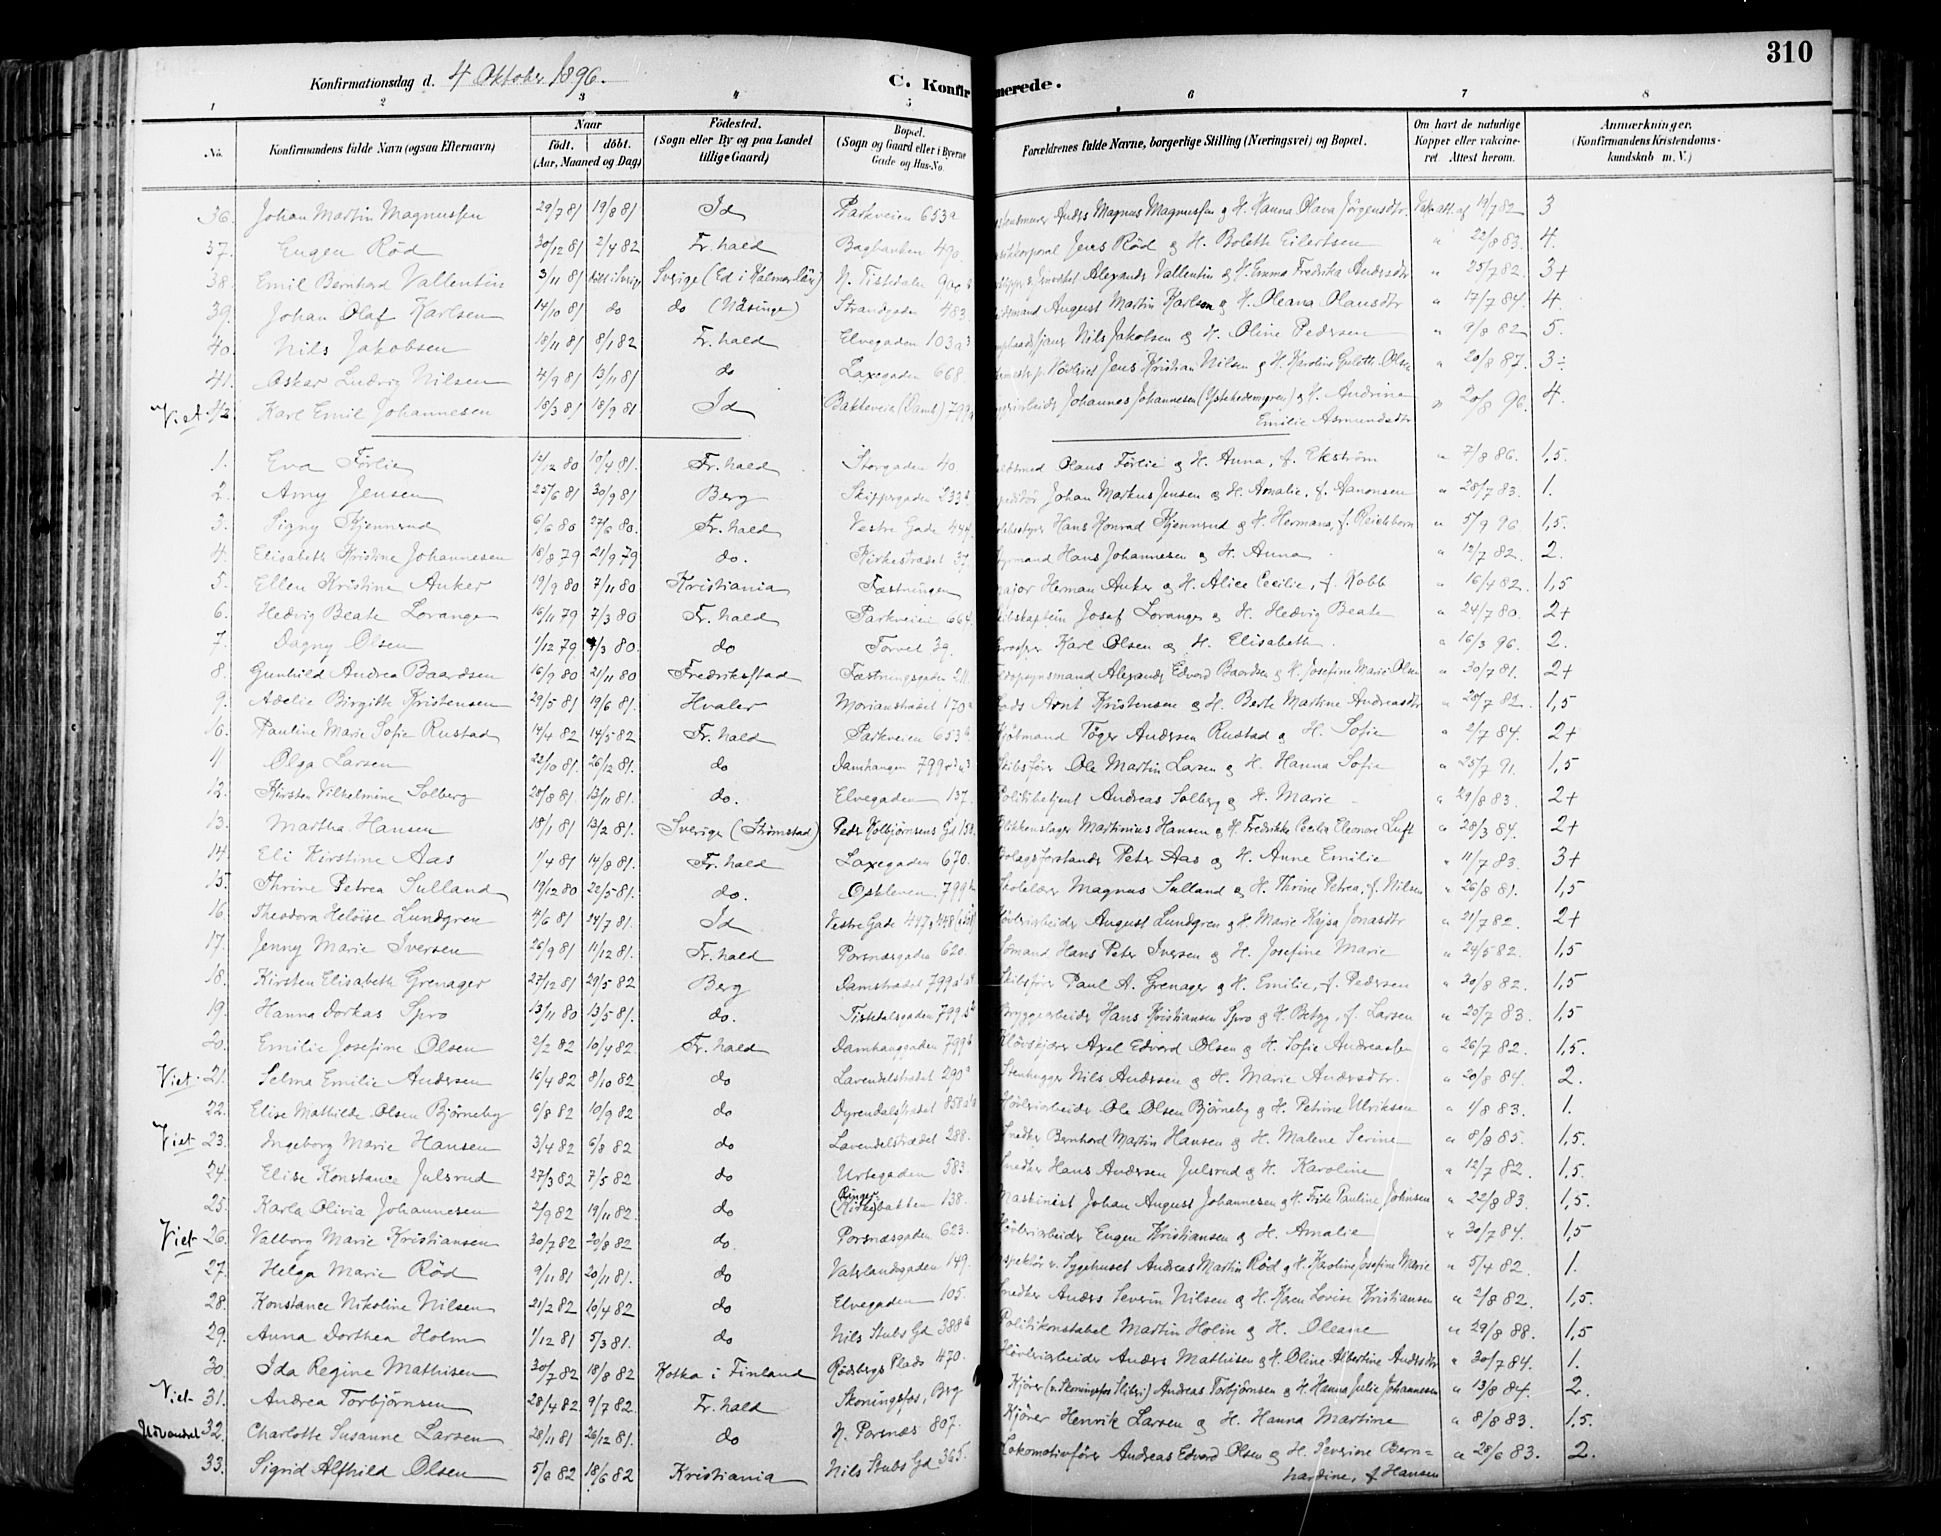 310
Konfirmationsdag d. 4 Oktober 1896.
C. Konfirmerede.
1 2 3 4 5 6 7 8
No. Konfirmandens fulde Navn (ogsaa Efternavn) Naar født. døbt. (Aar, Maaned og Dag) Fødested. (Sogn eller By og paa Landet tillige Gaard) Bopæl. (Sogn og Gaard eller i Byerne Gade og Hus-No. Forældrenes fulde Navne, borgerlige Stilling (Næringsvei) og Bopæl. Om havt de naturlige Kopper eller vaccineret. Attest herom. Anmærkninger. (Konfirmandens Kristendomskundskab m. V.)
36. Johan Martin Magnussen 29/7 81 19/8 81 Id Parkveien 653a Anders Magnus Magnussen g H. Hanna Olava Jørgensdtr. Vak. att. af 14/7 82 3
37. Eugen Rød 30/12 81 2/4 82 Fr.hald Baghanken 490. Jens Rød g H. Bolette Eilertsen " 22/8 83. 4.
38. Emil Bernhard Vallentin 3/11 81 Sverige (Ed i Kalmar län) N. Tistedalen Alexander Vallentin g H. Emma Fredrika Andersdtr " 25/7 82. 3+
39. Johan Olaf Karlsen 14/10 81 do do (Näsinge) Strandgaden 483. August Martin Karlsen g H. Oleana Olausdtr " 17/7 84. 4
40. Nils Jakobsen 18/11 81 8/1 82 Fr.hald Elvegaden 103a Nils Jakobsen g H. Oline Pedersen " 9/8 82 5.
41. Oskar Ludvig Nilsen 4/9 81 13/11 81 do Laxegaden 668. Jens Kristian Nilsen g H. Karoline Gulette Olsen " 20/8 87. 3÷
Viet 42 Karl Emil Johannesen 18/3 81 18/9 81 Id Bakkeveien (Damh) 799 Johannes Johannesen g H. Andrine " 20/8 96. 4.
Emilie Asmundsdtr
1. Eva Førlie 12/12 80 19/4 81. Fr.hald Storgaden 40 Olaus Førlie g H. Anna, f. Ekstrøm " 7/8 86. 1,5.
2. Amy Jensen 25/6 81 30/9 81 Berg Skippergaden 233a Johan Markus Jensen g H. Amalie, f. Aanonsen " 28/7 83. 1.
3. Signy Kjennsrud 6/6 80 27/6 80. Fr.hald Vestre Gade 444 Hans Konrad Kjennsrud g H. Hermana, f. Reichborn " 5/9 96. 1,5.
4. Elisabeth Kristine Johannesen 18/8 79 21/9 79 do. Kirkestrædet 37 Styrmand Hans Johannesen g H. Anna " 12/7 82. 2.
5. Ellen Kristine Anker 19/9 80 7/11 80 Kristiania Fæstningen Major Herman Anker g H. Alice Cecilie, f. Kobb " 16/4 82. 1,5
6. Hedvig Beate Lorange 16/11 79 7/3 80 Fr.hald Parkveien 664. Skibskaptein Josef Lorange g H. Hedvig Beate " 24/7 80. 2+
7. Dagny Olsen 1/12 79 /3 80. do Torvet 39. Karl Olsen g H. Elisabeth. " 16/3 96. 2.
8. Gunhild Andrea Baardsen 16/9 80 21/11 80 Fredriksstad Fæstningsgaden 211 Alexander Edvard Baardsen g H. Josefine Marie Olsen " 30/7 81. 2+
9. Adelie Birgitte Kristensen 29/5 81 19/6 81. Hvaler Morianstrædet 170a Lods Arnt Kristensen g H. Berte Martine Andreasdtr " 28/7 82. 1,5
10. Pauline Marie Sofie Rustad 14/4 82 14/5 82 Fr.hald Parkveien 653b Tøger Andersen Rustad g H. Sofie " 2/7 84. 2+
11. Olga Larsen 22/10 81. 26/12 81. do Damhaugen 799 Skibsfører Ole Martin Larsen g H. Hanna Sofie " 25/7 91. 1,5
12. Kirsten Vilhelmine Solberg 28/8 81 13/11 81. do. Elvegaden 137. Politibetjent Andreas Solberg g H. Marie " 29/8 83. 2+
13. Martha Hansen 18/1 81 13/2 81. Sverige (Strømstad) Peder Kolbjørnsens Gd 158. Blikkenslager Martinius Hansen g H. Fredrikke Cecilia Eleonore Luft " 28/3 84. 2+
14. Eli Kirstine Aas 1/4 81 14/8 81. Fr.hald Laxegaden 670. Bolagsforstander Peter Aas g H. Anne Emilie " 11/7 83. 3+
15. Thrine Petrea Sulland 19/12 80 22/5 81. do. Oskleven 799 Skolelærer Magnus Sulland g H. Thrine Petrea, f. Nilsen " 26/8 81. 1,5
16. Theodora Heloise Lundgren 4/6 81 24/7 81. Id Vestre Gade 447 g 448 Høvleriarbeider August Lundgren g H. Marie Kajsa Jonasdtr " 21/7 82. 2+
17. Jenny Marie Iversen 26/9 81 11/12 81. Fr.hald Porsnæsgaden 620. Sømand Hans Peter Iversen g H. Josefine Marie " 24/5 82. 1,5
18. Kirsten Elisabeth Grenager 27/12 81 29/5 82 Berg Damstrædet 799 Skibsfører Paul A. Grenager g H. Emilie, f. Pedersen " 30/8 82. 1,5
19. Hanna Dorkas Spro 13/11 80 13/5 81. do. Tistedalsgaden 799 Bryggearbeider Hans Kristiansen Spro g H. Betzy, f. Larsen " 25/7 83. 1,5
20. Emilie Josefine Olsen 2/2 82 10/4 82. Fr.hald Damhauggaden 799b Axel Edvard Olsen g H. Sofie Andreassen " 26/7 82. 1,5.
Viet. 21. Selma Emilie Andersen 16/4 82 8/10 82 do Lavendelstrædet 290a Stenhugger Nils Andersen g H. Marie Andersdtr. " 20/8 84. 2.
22. Elise Mathilde Olsen Bjørneby 6/8 82 10/9 82 do Dyrendalstrædet 858 Høvleriarbeider Ole Olsen Bjørneby g H. Petrine Ulriksen " 1/8 83. 1.
Viet 23. Ingeborg Marie Hansen 3/4 82 6/8 82 do Lavendelstrædet 288. Snedker Bernhard Martin Hansen g H. Malene Serine " 8/8 85. 1,5.
24. Elise Konstance Julsrud 27/3 82 7/5 82 do Urtegaden 583. Snedker Hans Andersen Julsrud g H. Karoline " 12/7 82. 1,5.
25. Karla Olivia Johannesen 2/9 82 19/11 82. do (Kirke)bakken 138. Maskinist Johan August Johannesen g H. Frida Pauline Johnsen " 22/8 83. 1,5.
Viet 26. Valborg Marie Kristiansen 30/7 82 20/8 82 do. Porsnæsgaden 623. Høvleriarbeider Eugen Kristiansen g H. Amalie " 30/7 84. 1,5
27. Helga Marie Rød 9/11 81 20/11 81. do Vaterlandsgaden 149. Inspektør v. Sygehuset Andreas Martin Rød g H. Karoline Josefine Marie " 5/4 82. 1.
28. Konstance Nikoline Nilsen 21/2 82 10/4 82 do Elvegaden 105. Snedker Anders Severin Nilsen g H. Karen Lovise Kristiansen " 2/8 82. 1,5.
29. Anna Dorthea Holm 1/12 81 5/3 81. do Nils Stubs Gd 388b Politikonstabel Martin Holm g H. Oleane " 29/8 88. 1,5
30. Ida Regine Mathisen 30/7 82 18/8 82 Kotka i Finland Rødsbergs Plads 470. Høvleriarbeider Anders Mathisen g H. Oline Albertine Andersdtr " 30/7 84. 1.
Viet 31. Andrea Torbjørnsen 28/4 82 9/7 82. Fr.hald Skoningsfos, Berg Kjører (v. Skoningsfos Sliberi) Andreas Torbjørnsen g H. Hanna Julie Johannesen " 13/8 84. 2.
Udvandret 32. Charlotte Susanne Larsen 28/11 81 26/12 81. do N. Porsnæs 807. Kjører Henrik Larsen g H. Hanna Martine " 8/8 83. 1,5.
33. Sigrid Alfhild Olsen 5/6 82 18/6 82 Kristiania Nils Stubs Gd 365. Lokomotivfører Andreas Edvard Olsen g H. Severine Bern=
hardine, f. Hansen " 28/6 83. 2.